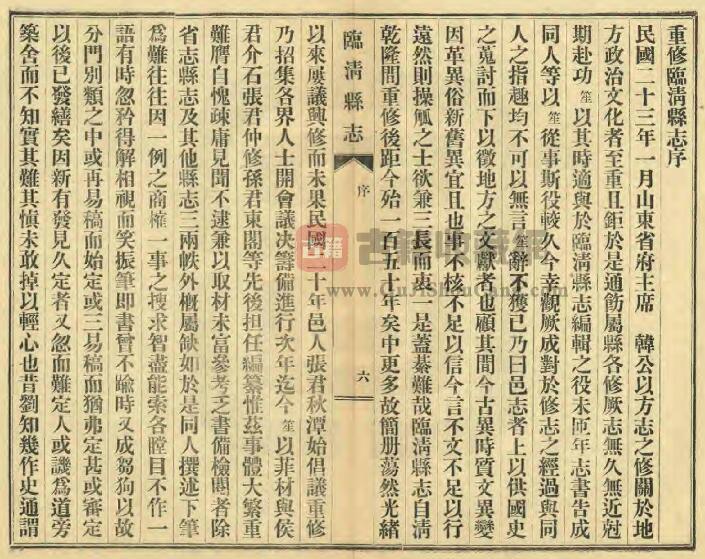 重修臨淸縣志序
民國二十三年一月山東省府主席　韓公以方志之修關於地
方政治文化者至重且鉅於是通飭屬縣各修厥志無久無近尅
期赴功笙以其時適與於臨淸縣志編輯之役未匝年志書告成
同人等以笙從事斯役較久今幸觀厥成對於修志之經過與同
人之指趣均不可以無言笙辭不獲已乃曰邑志者上以供國史
之蒐討而下以徵地方之文獻者也顧其間今古異時質文異變
因革異俗新舊異宜且也事不核不足以信今言不文不足以行
遠然則操觚之士欲兼三長而衷一是蓋綦難哉臨淸縣志自淸
乾隆間重修後距今殆一百五十年矣中更多故簡册蕩然光緒
臨淸縣志
序
六
以來屢議興修而未果民國二十年邑人張君秋潭始倡議重修
乃招集各界人士開會議决籌備進行次年迄今笙以菲材與侯
君介石張君仲修孫君東閣等先後担任編纂惟茲事體大繁重
難膺自愧疎庸見聞不逮兼以取材未富參考乏書備檢閱者除
省志縣志及其他縣志三兩帙外槪屬缺如於是同人撰述下筆
爲難往往因一例之商榷一事之搜求智盡能索各瞠目不作一
語有時忽矜得解相視而笑振筆即書曾不踰時又成芻狗以故
分門別類之中或再易稿而始定或三易稿而猶弗定甚或審定
以後已發繕矣因新有發見久定者又忽而難定人或譏爲道旁
築舍而不知實其難其愼未敢掉以輕心也昔劉知幾作史通謂
古籍
古籍收藏網
www.GuJiShouCang.com